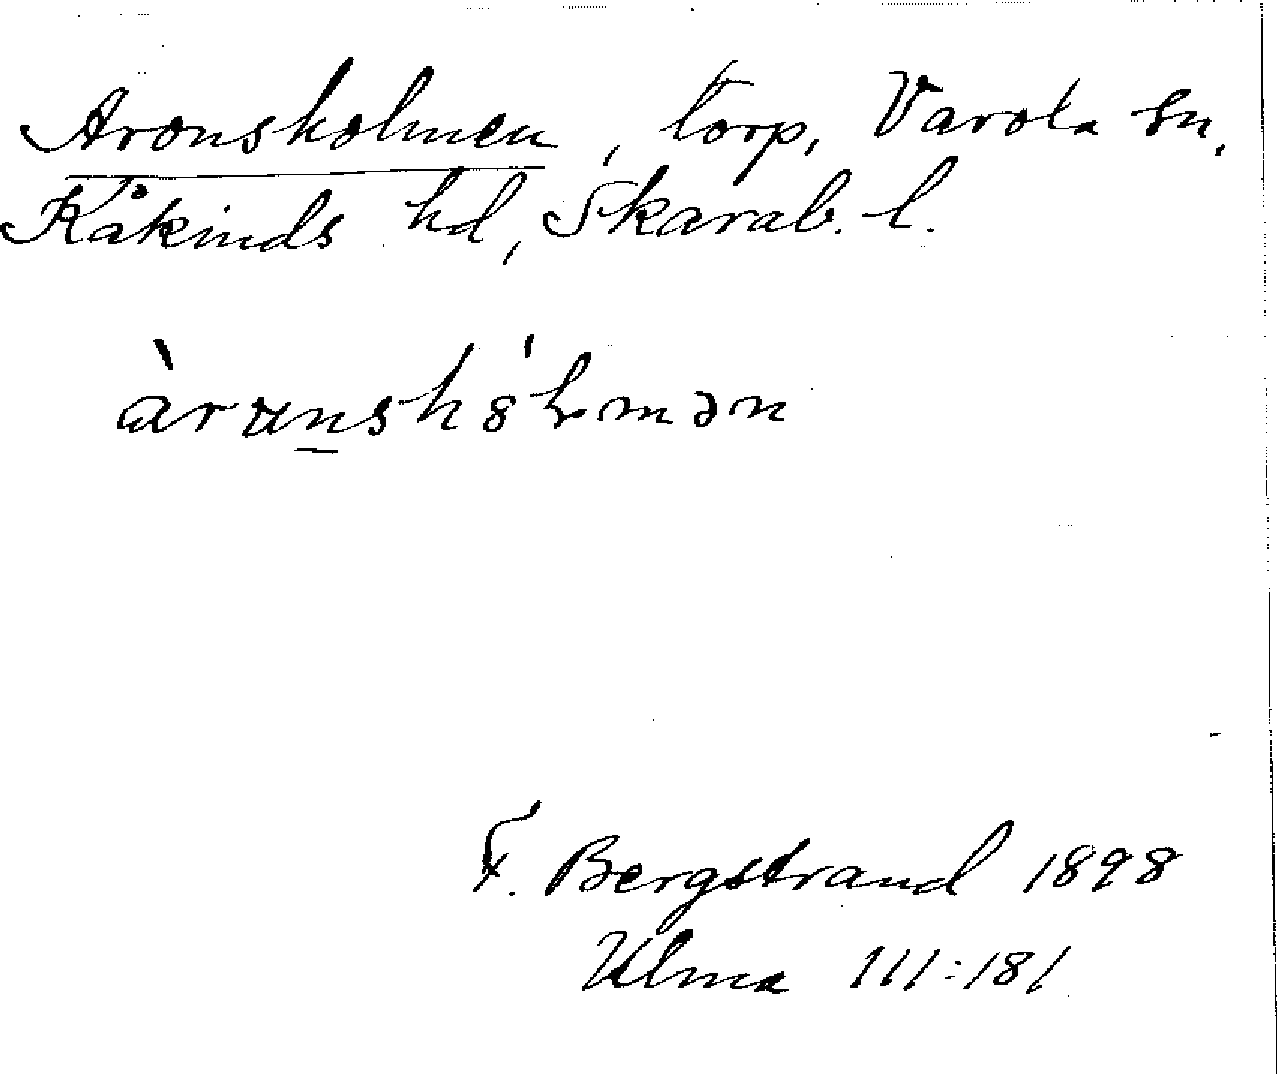 Aronsholmen, torp, Varola sn,
Kåkinds hd, Skarab. l.
F. Bergstrand 1898
Ulma 111:181